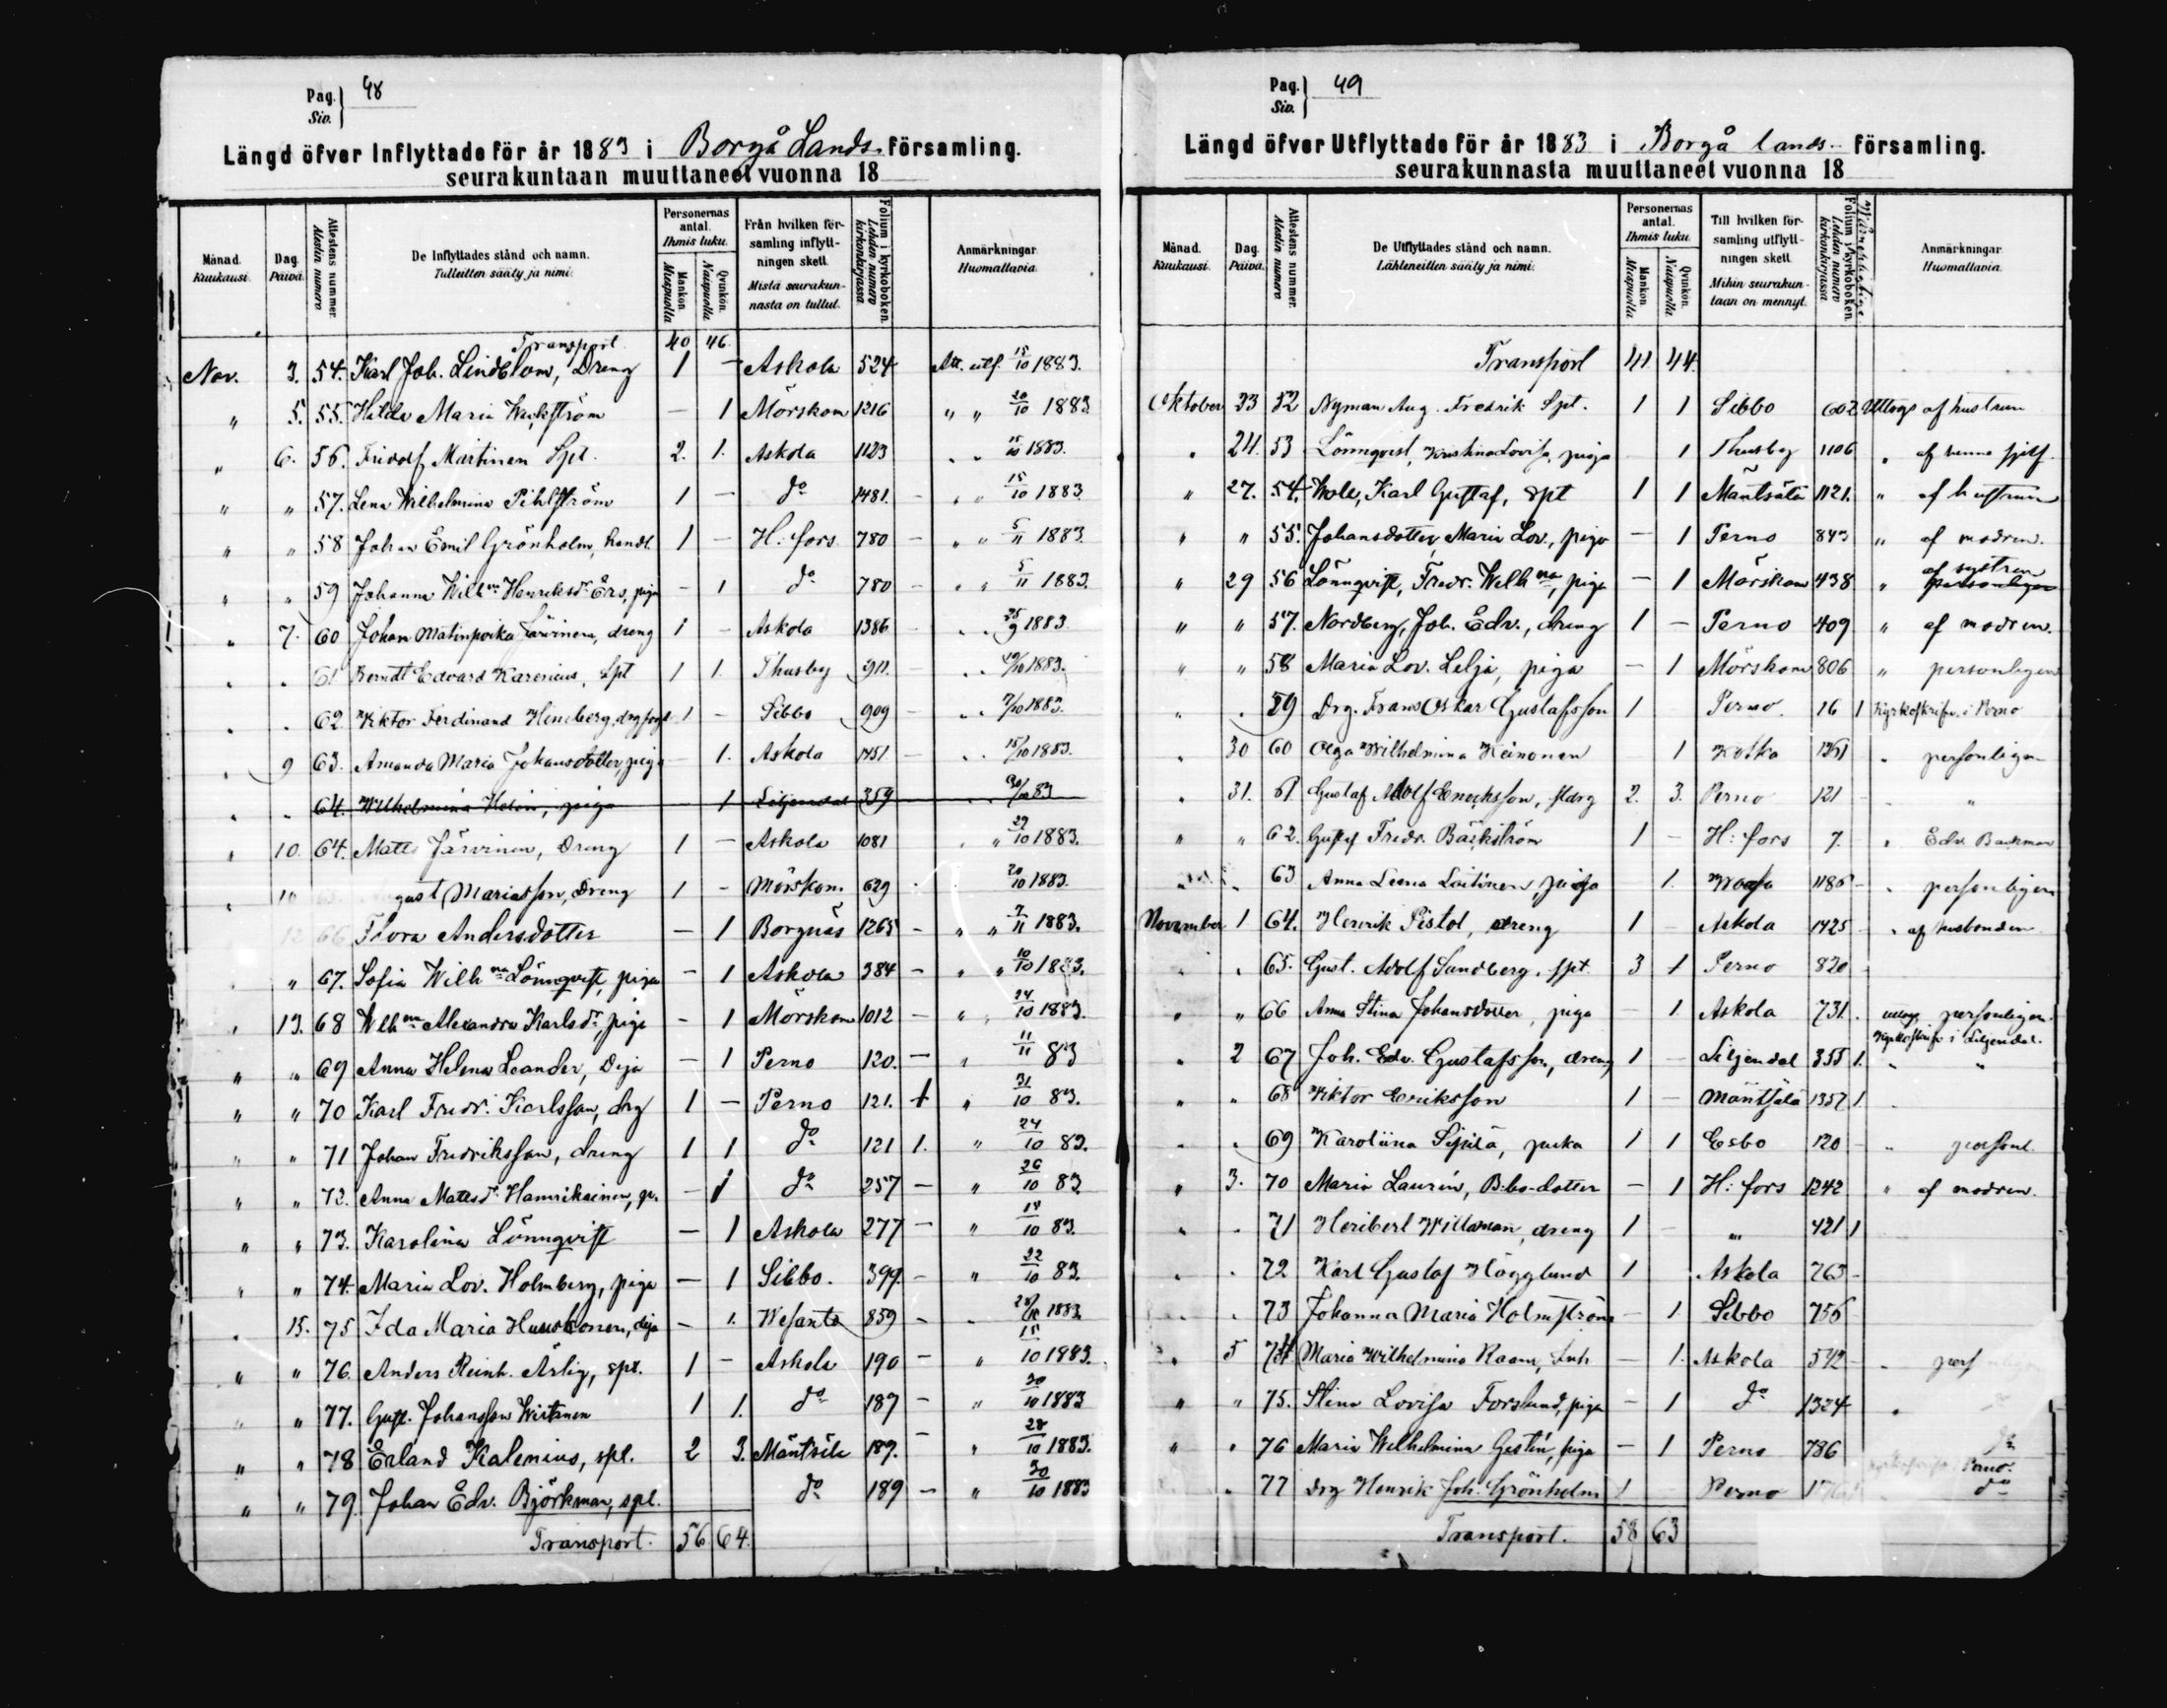 Pag. Siv. 48
Längd öfver Inflyttade för år 1883 i Borgå Lands församling.
seurakuntaan muuttaneet vuonna 18
Månad. Kuukausi. Dag. Päivä. Attestens nummer. Atestin numero De Inflyttades stånd och namn. Tulleitten sääty ja nimi. Personernas antal. Ihmis luku. Mankön. Miespuolia Qvinkön. Naispuolia Från hvilken församling inflyttningen skett. Mistä seurakunnasta on tullut. Folium i kyrkoboken. Lehden numero kirkonkirjassa Anmärkningar. Huomattavia.
Transport 40 46
Nov. 3. 54. Karl Joh. Lindblom, Dreng 1 — Askola 524 Att. utf. 15/10 1883.
" 5. 55. Hilda Maria Wickström — 1 Mörskom 1216 " " 20/10 1883
" 6. 56. Fridolf Martinen Spt. 2. 1. Askola 1123 " " 15/10 1883.
" " 57. Lena Wilhelmina Pihlström 1 — do 1481. — " " 15/10 1883
" " 58 Johan Emil Grönholm, handl. 1 — H:fors 780 — " " 5/11 1883
" " 59 Johanna Wilhna Henriksdr Ers, piga — 1 do 780 — " " 5/11 1883.
" 7. 60 Johan Matinpoika Järvinen, dreng 1 — Askola 1386 — " " 25/9 1883
" " 61 Berndt Edvard Karenius, Spt 1 1. Thusby 911. " " 19/10 1883.
" " 62 Viktor Ferdinand Hineberg, 1 — Sibbo 909 — " " 7/10 1883.
" 9 63. Amanda Maria Johansdotter, piga — 1. Askola 1451 — " " 15/10 1883.
" " 64. Wilhelmina Helin, piga 1 Liljendal 359 " " 30/10 83
" 10. 64. Matts Järvinen, Dreng 1 — Askola 1081 " " 29/10 1883.
" 10 August Mariasson, Dreng 1 - Mörskom 629 20/10 1883.
12 66 Flora Andersdotter — 1 Borgnäs 1265 - " " 7/11 1883.
" " 67. Sofia Wilhna Lönnqvist, piga — 1 Askola 384 — " " 10/10 1883.
" 13. 68 Wlhna Alexandra Karlsdr, piga — 1 Mörskom 1012 — " " 24/10 1883.
" " 69 Anna Helena Leander, Deja — 1 Perno 120. — " 11/11 83
" " 70 Karl Fredr. Karlsson, drg 1 — Perno 121. 1 " 31/10 83.
" " 71 Johan Fredriksson, dreng 1 1 do 121 1. " 24/10 83.
" " 72. Anna Mattsdr. Hamrikainen, — 1 do 257 — " 26/10 83
" " 73. Karolina Lönnqvist — 1 Askola 277 — " 10 83.
" " 74. Maria Lov. Holmberg, piga — 1 Sibbo. 399. — " 22/10 83.
" 15. 75 Ida Maria Huuskonen, deja — 1. 859 — " 1883.
" " 76. Anders Reinh. Ärlig, spt. 1 — Askola 190 — " 15/10 1883.
" " 77. Gust. Johansson Wirtanen 1 1. do 187 — " 30/10 1883
" " 78 Erland Kalenius, spt. 2 3. Mäntsälä 189. — " 28/10 1883.
" " 79. Johan Edv. Björkman, spt. do 189 — " 30/10 1883
Transport. 56 64.
Pag. Siv. 49
Längd öfver Utflyttade för år 1883 i Borgå lands- församling.
seurakunnasta muuttaneet vuonna 18
Månad. Kuukausi. Dag. Päivä. Attestens nummer. Atestin numero De Utflyttades stånd och namn. Lähteneitten sääty ja nimi. Personernas antal. Ihmis luku. Mankön. Miespuolia Qvinkön. Naispuolia Till hvilken församling utflyttningen skett. Mihin seurakuntaan on mennyt. Folium i kyrkoboken. Lehden numero kirkonkirjassa Anmärkningar. Huomattavia.
Transport 41 44.
Oktober 23 52 Nyman Aug. Fredrik Spt. 1 1 Sibbo 602. Uttogs af hustrun
" 24. 53 Lönnqvist, Kristina Lovisa, piga 1 Thusby 1106 " af henne sjelf.
" 27. 54. Wole, Karl Gustaf, Spt 1 1 Mäntsälä 1121. " af hustrun
" " 55. Johansdotter, Maria Lov., piga — 1 Perno 843 " af modren.
" 29 56 Lönnqvist, Fredr. Wilhna, piga — 1 Mörskom 438 " personligen af systren
" " 57. Nordberg, Joh. Edv., dreng 1 — Perno 409 " af modren.
" " 58 Maria Lov. Lilja, piga — 1 Mörskom 806 " personligen
" " 59 Drg. Frans Oskar Gustafsson 1 Perno. 16 1 Kyrkoskrifn. i Perno
" 30 60 Olga Wilhelmina Heinonen 1 Kotka 1361 " personligen
" 31. 61 Gustaf Adolf Enocksson, 2. 3. Perno 121 - " "
" " 62. Gustaf Fredr. Bäckström 1 — H:fors 7. " Edv. Backman
" " 63 Anna Leena Laitinen, piga 1. Wasa 1186 - " personligen
November 1 64. Henrik Pistol, dreng 1 — Askola 1425 - " af husbonden
" " 65. Gust. Adolf Sandberg, spt. 3 1 Perno 820 -
" " 66 Anna Stina Johansdotter, piga 1. Askola 731. uttogs personligen.
" 2 67 Joh. Edv. Gustafsson, dreng 1 — Liljendal 355 1. Kyrkoskrifn i Liljendal. " "
" " 68 Viktor Eriksson 1 — Mäntsälä 1357 1. "
" " 69 Karoliina Sipilä, piika 1 1 Esbo 120 - " personl.
" 3. 70 Maria Laurén, B:bo-dotter — 1 H:fors 1242 " af modren.
" " 71 Heribert Willaman, dreng 1 — " 421 1
" " 72 Karl Gustaf Högglund 1 Askola 763 -
" " 73 Johanna Maria Holmström — 1. Sibbo 756
" 5 74 Maria Wilhelmina Raam, Inh — 1. Askola 542 - " pers
" " 75. Stina Lovisa Forslund, piga — 1 do 1324 "
" " 76 Maria Wilhelmina Gestén, piga — 1 Perno 786 do
" 77 Drg Henrik Joh. Grönholm 1 — Perno Perno. do
Transport. 58 63